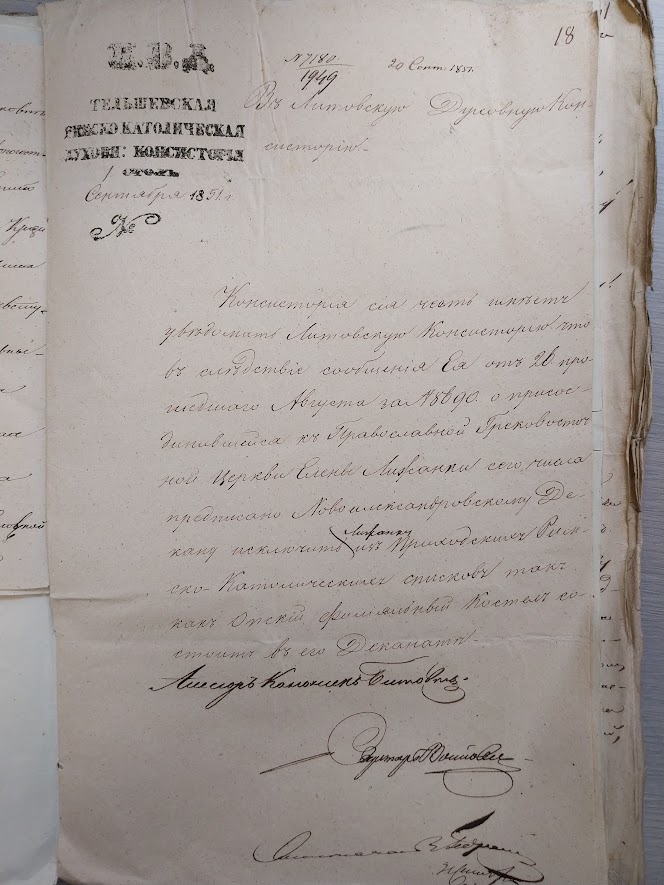 18
Е. В. Д.
№ 7180.
1949
20 Сент 1851.
ТЕЛЬШЕВСКАЯ
РИМСКО КАТОЛИЧЕСКАЯ
ДУХОВН: КОНСИСТОРІЯ
СТОЛЪ
1
Сентября 1851 г.
№
Въ Литовскую Духовную Кон-
систорію.
Консисторія сія честь имѣетъ
увѣдомить Литовскую Консисторію что
въ слѣдствіе сообщенія Ея отъ 26 про-
шедшаго Августа за № 5890. о присое-
динившейся къ Православной Грековосточ
ной Церкви Елены сего числа
предписано Новоалександровскому Де-
кану исключить изъ Приходскихъ Рим-
ско-Католическихъ списковъ такъ
какъ Опскій филіальный Костелъ со-
стоитъ въ его Деканатѣ.
Ассесоръ Каноникъ